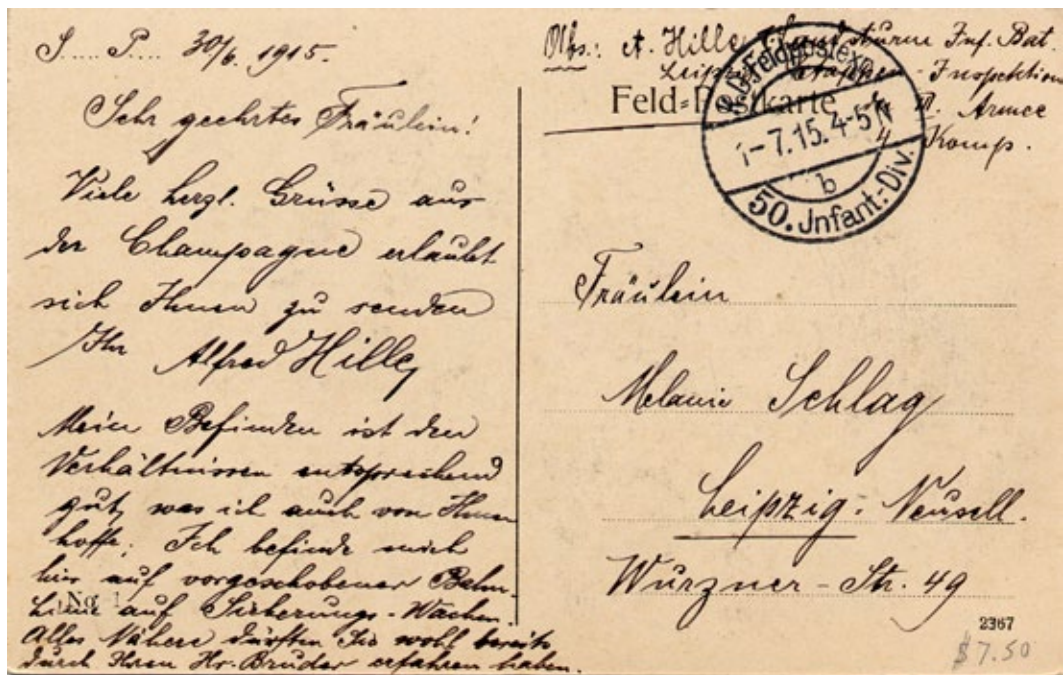 S..... P..... 30/6. 1915.
Sehr geehrtes Fräulein!
Viele herzl. Grüsse aus
der Champagne erlaubt
sich Ihnen zu senden
Ihr Alfred Hille,
Mein Befinden ist den
Verhältnissen entsprechend
gut, was ich auch von Ihnen
hoffe; Ich befinde mich
hier auf vorgeschobener Bahn-
Linie auf Sicherungs-Wachen.
Alles Nähere dürften Sie wohl bereits
durch Ihren Hr. Bruder erfahren haben.
Abs.: A. Hille, Landsturm Inf. Bat.
Leipzig Etappen-Inspektion
Armee
4. Komp.
Feld-Postkarte
Feldpostexp.
1-7.15. 4-5 N
b
50. Jnfant.-Div.
Fräulein
Melanie Schlag
Leipzig-Neusell.
Wurzner-Str. 49
2367
$7.50